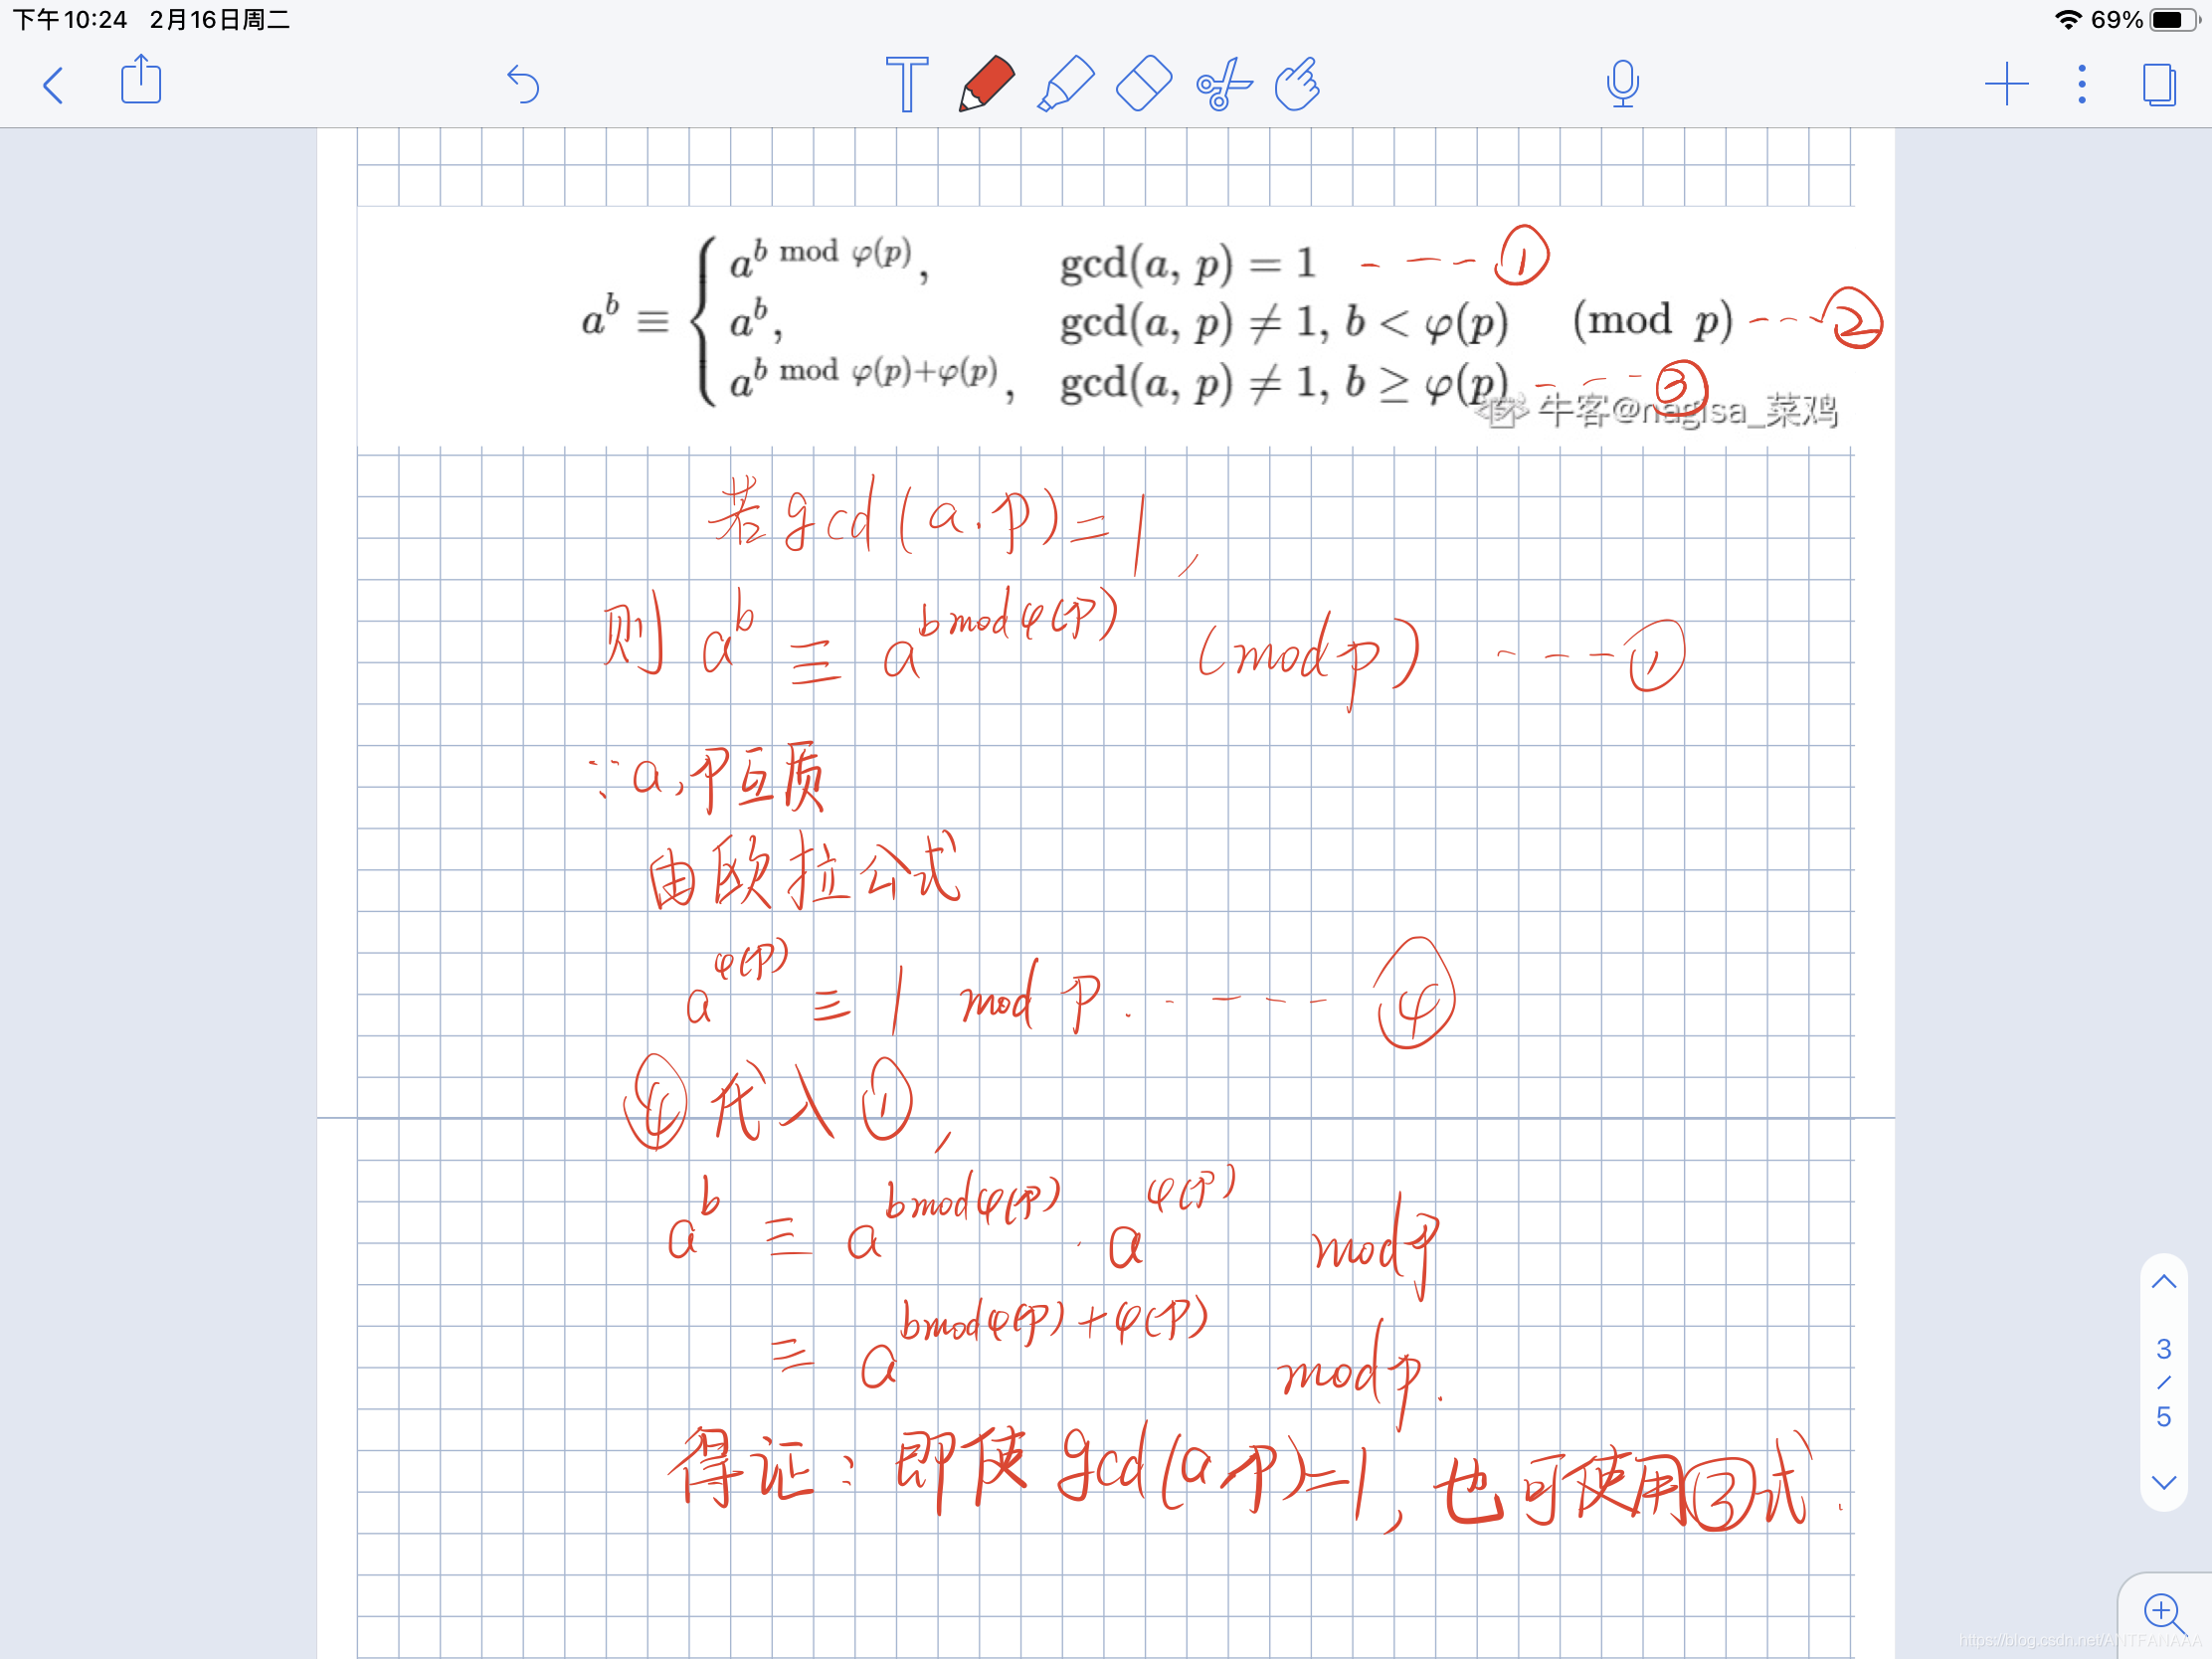 下午10:24 2月16日周二
69%
a^{b mod φ(p)}, gcd(a, p) = 1 ---①
a^b ≡ { a^b, gcd(a, p) ≠ 1, b < φ(p) (mod p) ---②
a^{b mod φ(p)+φ(p)}, gcd(a, p) ≠ 1, b ≥ φ(p) ---③
牛客@nagisa_菜鸡
若gcd(a.p)=1,
则 a^b ≡ a^{b mod φ(p)} (mod p) ---①
∵a,p互质
由欧拉公式
a^{φ(p)} ≡ 1 mod p. ----④
④代入①,
a^b ≡ a^{b mod φ(p)} · a^{φ(p)} mod p
≡ a^{b mod φ(p) + φ(p)} mod p.
得证：即使gcd(a p)=1, 也可使用③式.
3
/
5
https://blog.csdn.net/ANTFANAAA